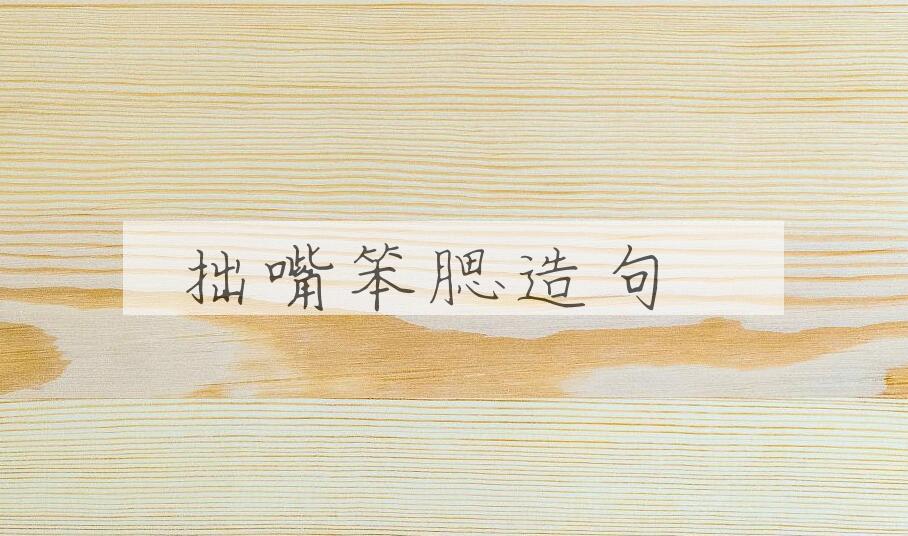 拙嘴笨腮造句